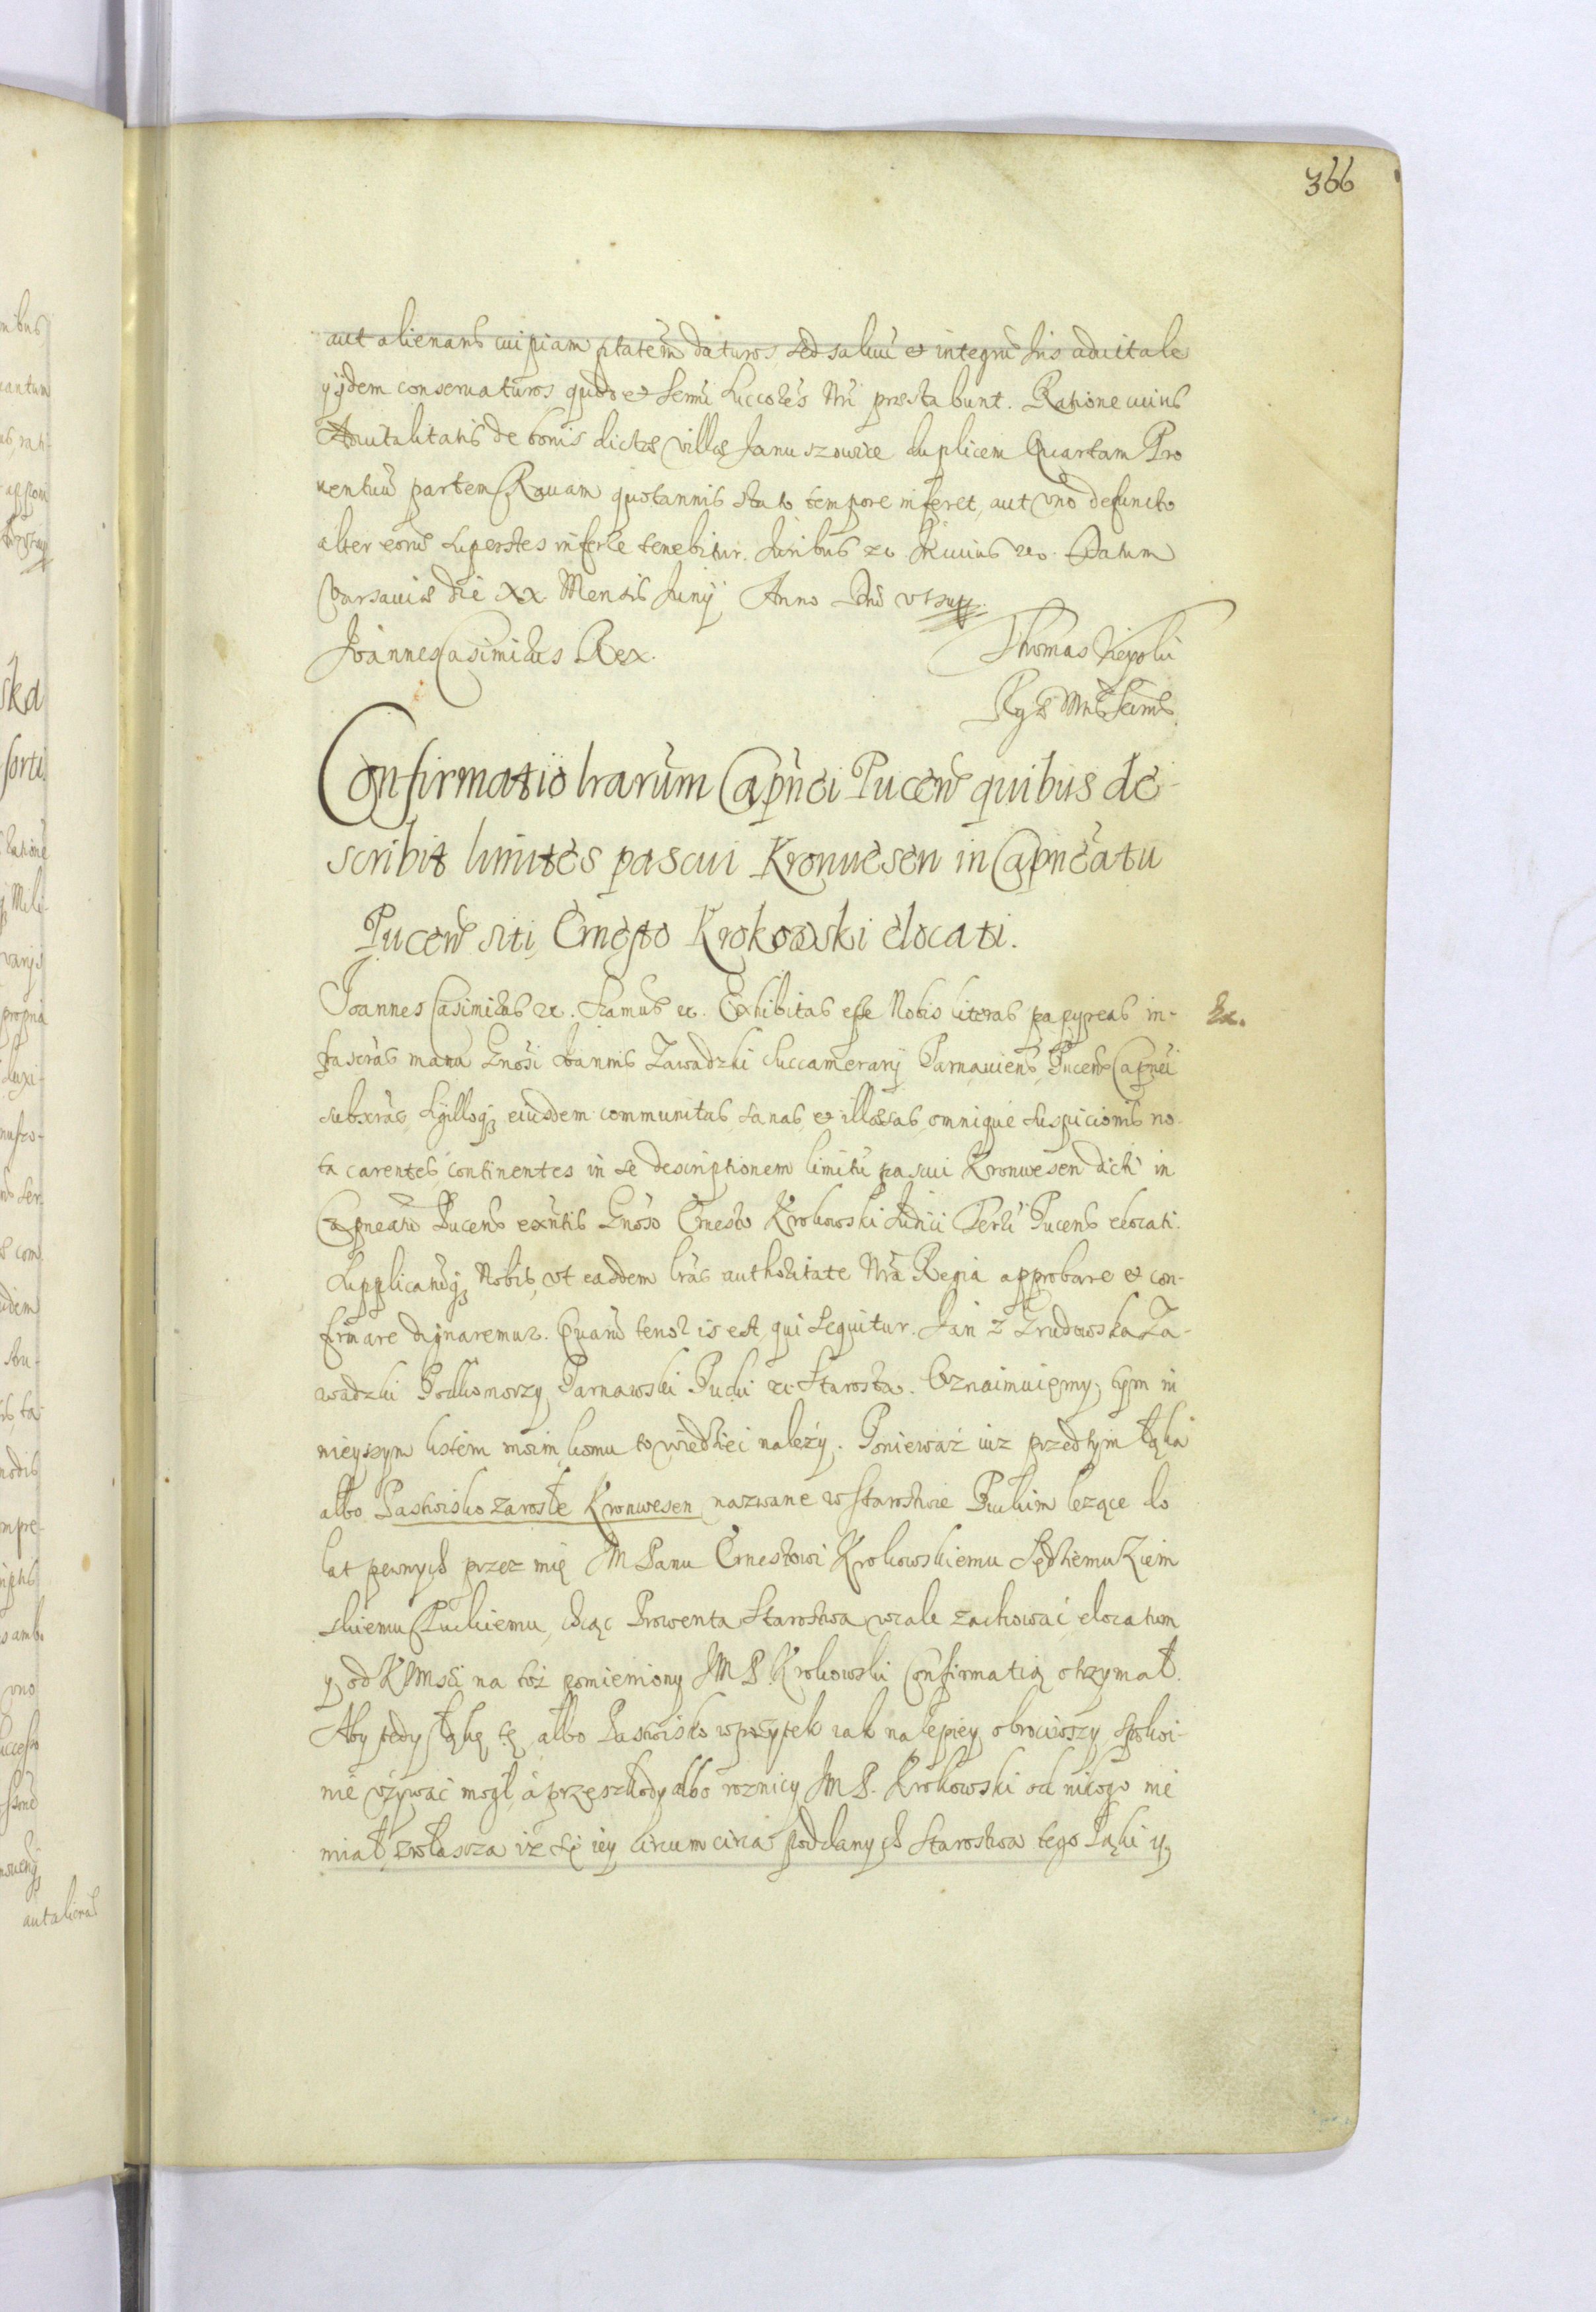 366
aut alienans cuipiam ptatem daturos sed saluũ et integrũ Jus aduitale
ijsdem conseruaturos, quod et Sermi Succores Nri præstabunt. Ratione cuius
Aduitalitatis de bonis dictæ villæ Januszowice duplicem Quartam Pro
uentuũ partem Rauam quotannis stato tempore inferet, aut vno defuncto
alter eorũ superstes inferre tenebitur. Juribus etc. In cuius reo. Datum
Varsauiæ die XX Mensis Junij Anno Dni vt supr.
Joannes Casimirus Rex.
Thomas
Rgæ Mtis Secrius
Confirmatio lrarum Capnei Pucen quibus de-
scribit limites pascui Kronwesen in Capneatu
Pucen siti, Ernesto Krokowski elocati.
Joannes Casimirus etc. Sgamus etc. Exhibitas esse Nobis literas papyreas in-
frascras manu Gnosi Joannis Zawadzki Succamerarij Parnauiens, Pucens Capnei
subscras, Sigilloq; eiusdem communitas sanas, et illæsas, omnique suspicionis no-
ta carentes continentes in se descriptionem limitũ pascui Kronwesen dicti in
Capneatu Pucens exntis Gnoso Ernesto Krokowski Judici Terri Pucens elocati.
Supplicatũq; Nobis, vt easdem lras authoritate Nra Regia approbare et con-
firmare dignaremur. Quarũ tenor is est, qui sequitur. Jan z Grudowska Za-
wadzki Podkomorzy Parnawski Pucki etc Starosta. Oznaimuięmy, tym ni
nieyszym listem moim komu to wiedzieć należy. Ponieważ iuz przedtym Łąka
albo Pastwisko zarosłe Kronwesen nazwane w Starostwie Puckim lezące do
lat pewnych przez mię JM Panu Ernestowi Krokowskiemu Sędziemu Ziem
skiemu Puckiemu, chcąc Prowenta Starostwa wcale zachować, elocatum
y od KJMsci na toż pomieniony JM P. Krokowski Confirmatią otrzymał.
Aby tedy Łąkę tę albo Pastwisko w pozytek iak nalepiey obrociwszy spokoi-
nie vżywać mogł, a przeszkody albo roznicy JM P. Krokowski od nikogo nie
miał, zwłaszcza iż się iey circumcirca poddanych Starostwa tego Łąki y
Ex.